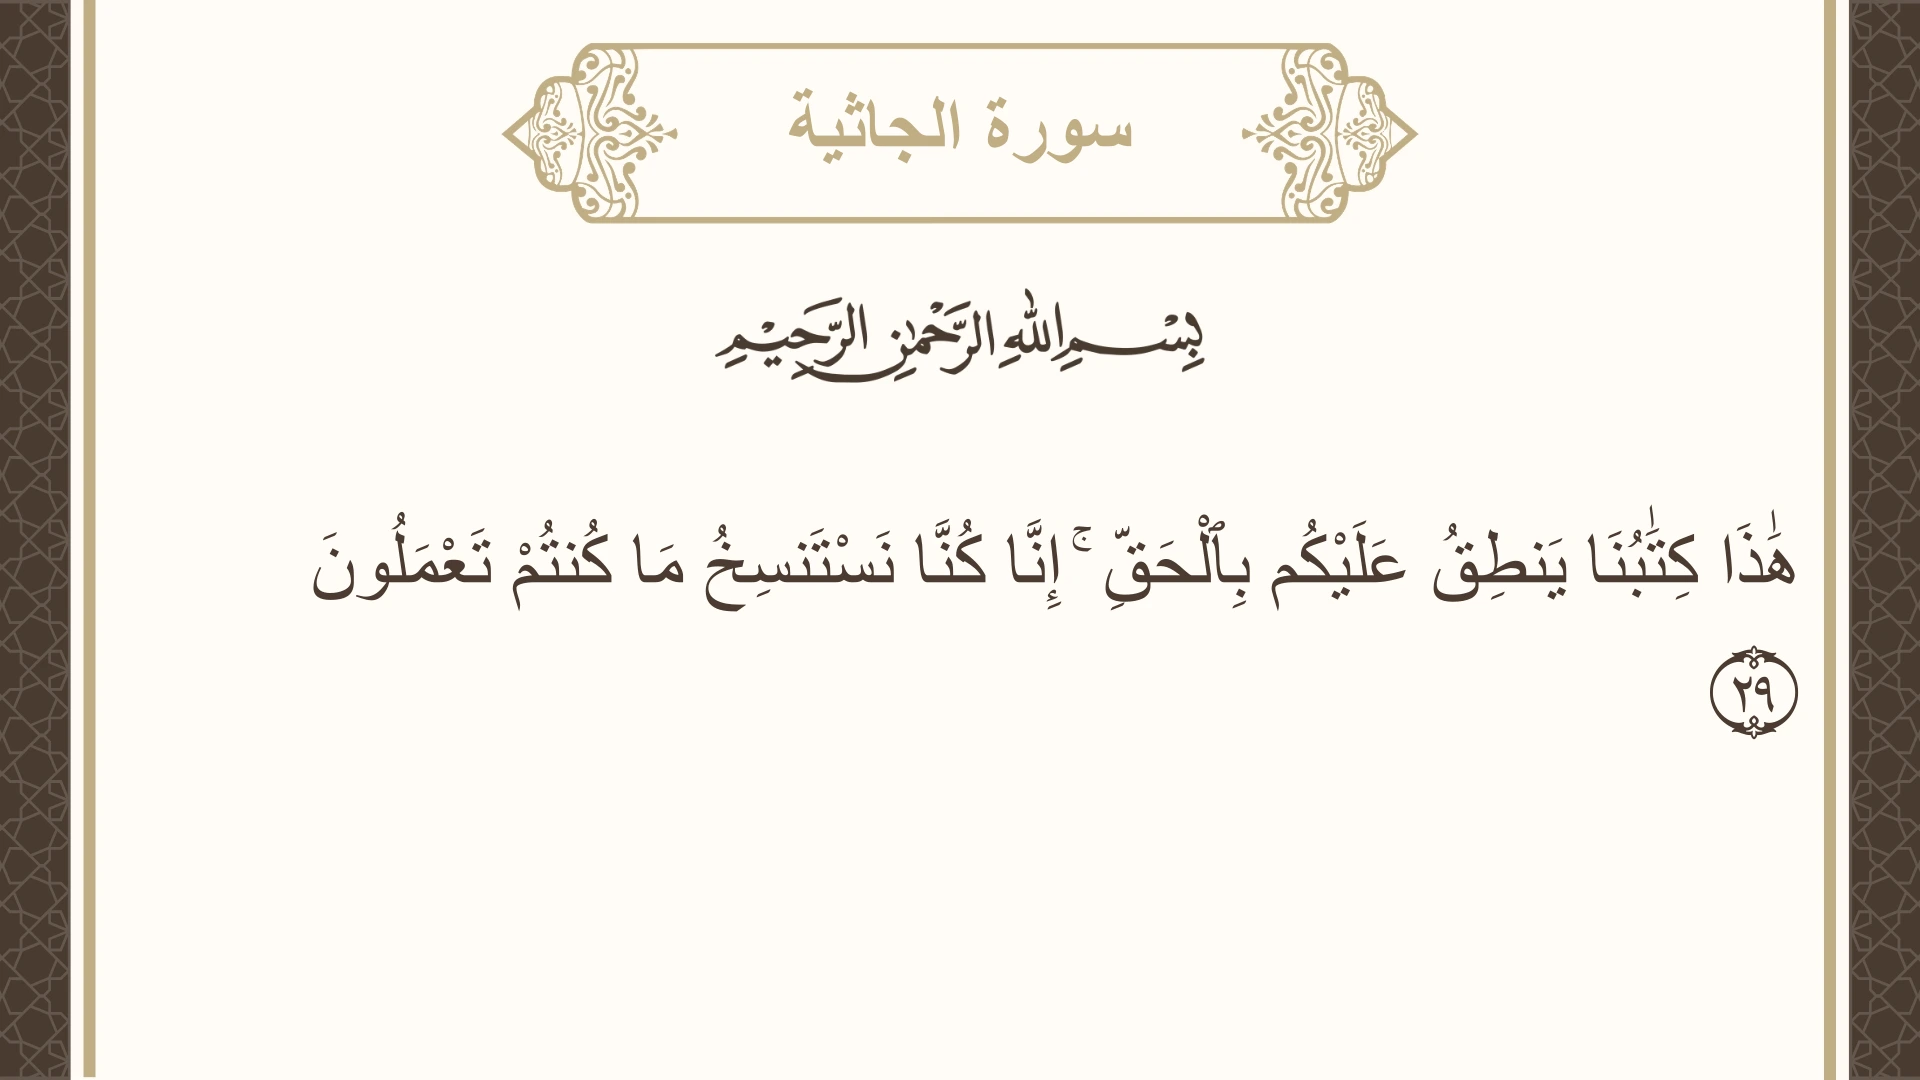 سورة الجاثية
بِسْمِ اللهِ الرَّحْمٰنِ الرَّحِيْمِ
هَٰذَا كِتَٰبُنَا يَنطِقُ عَلَيْكُم بِٱلْحَقِّ ۚ إِنَّا كُنَّا نَسْتَنسِخُ مَا كُنتُمْ تَعْمَلُونَ
٢٩